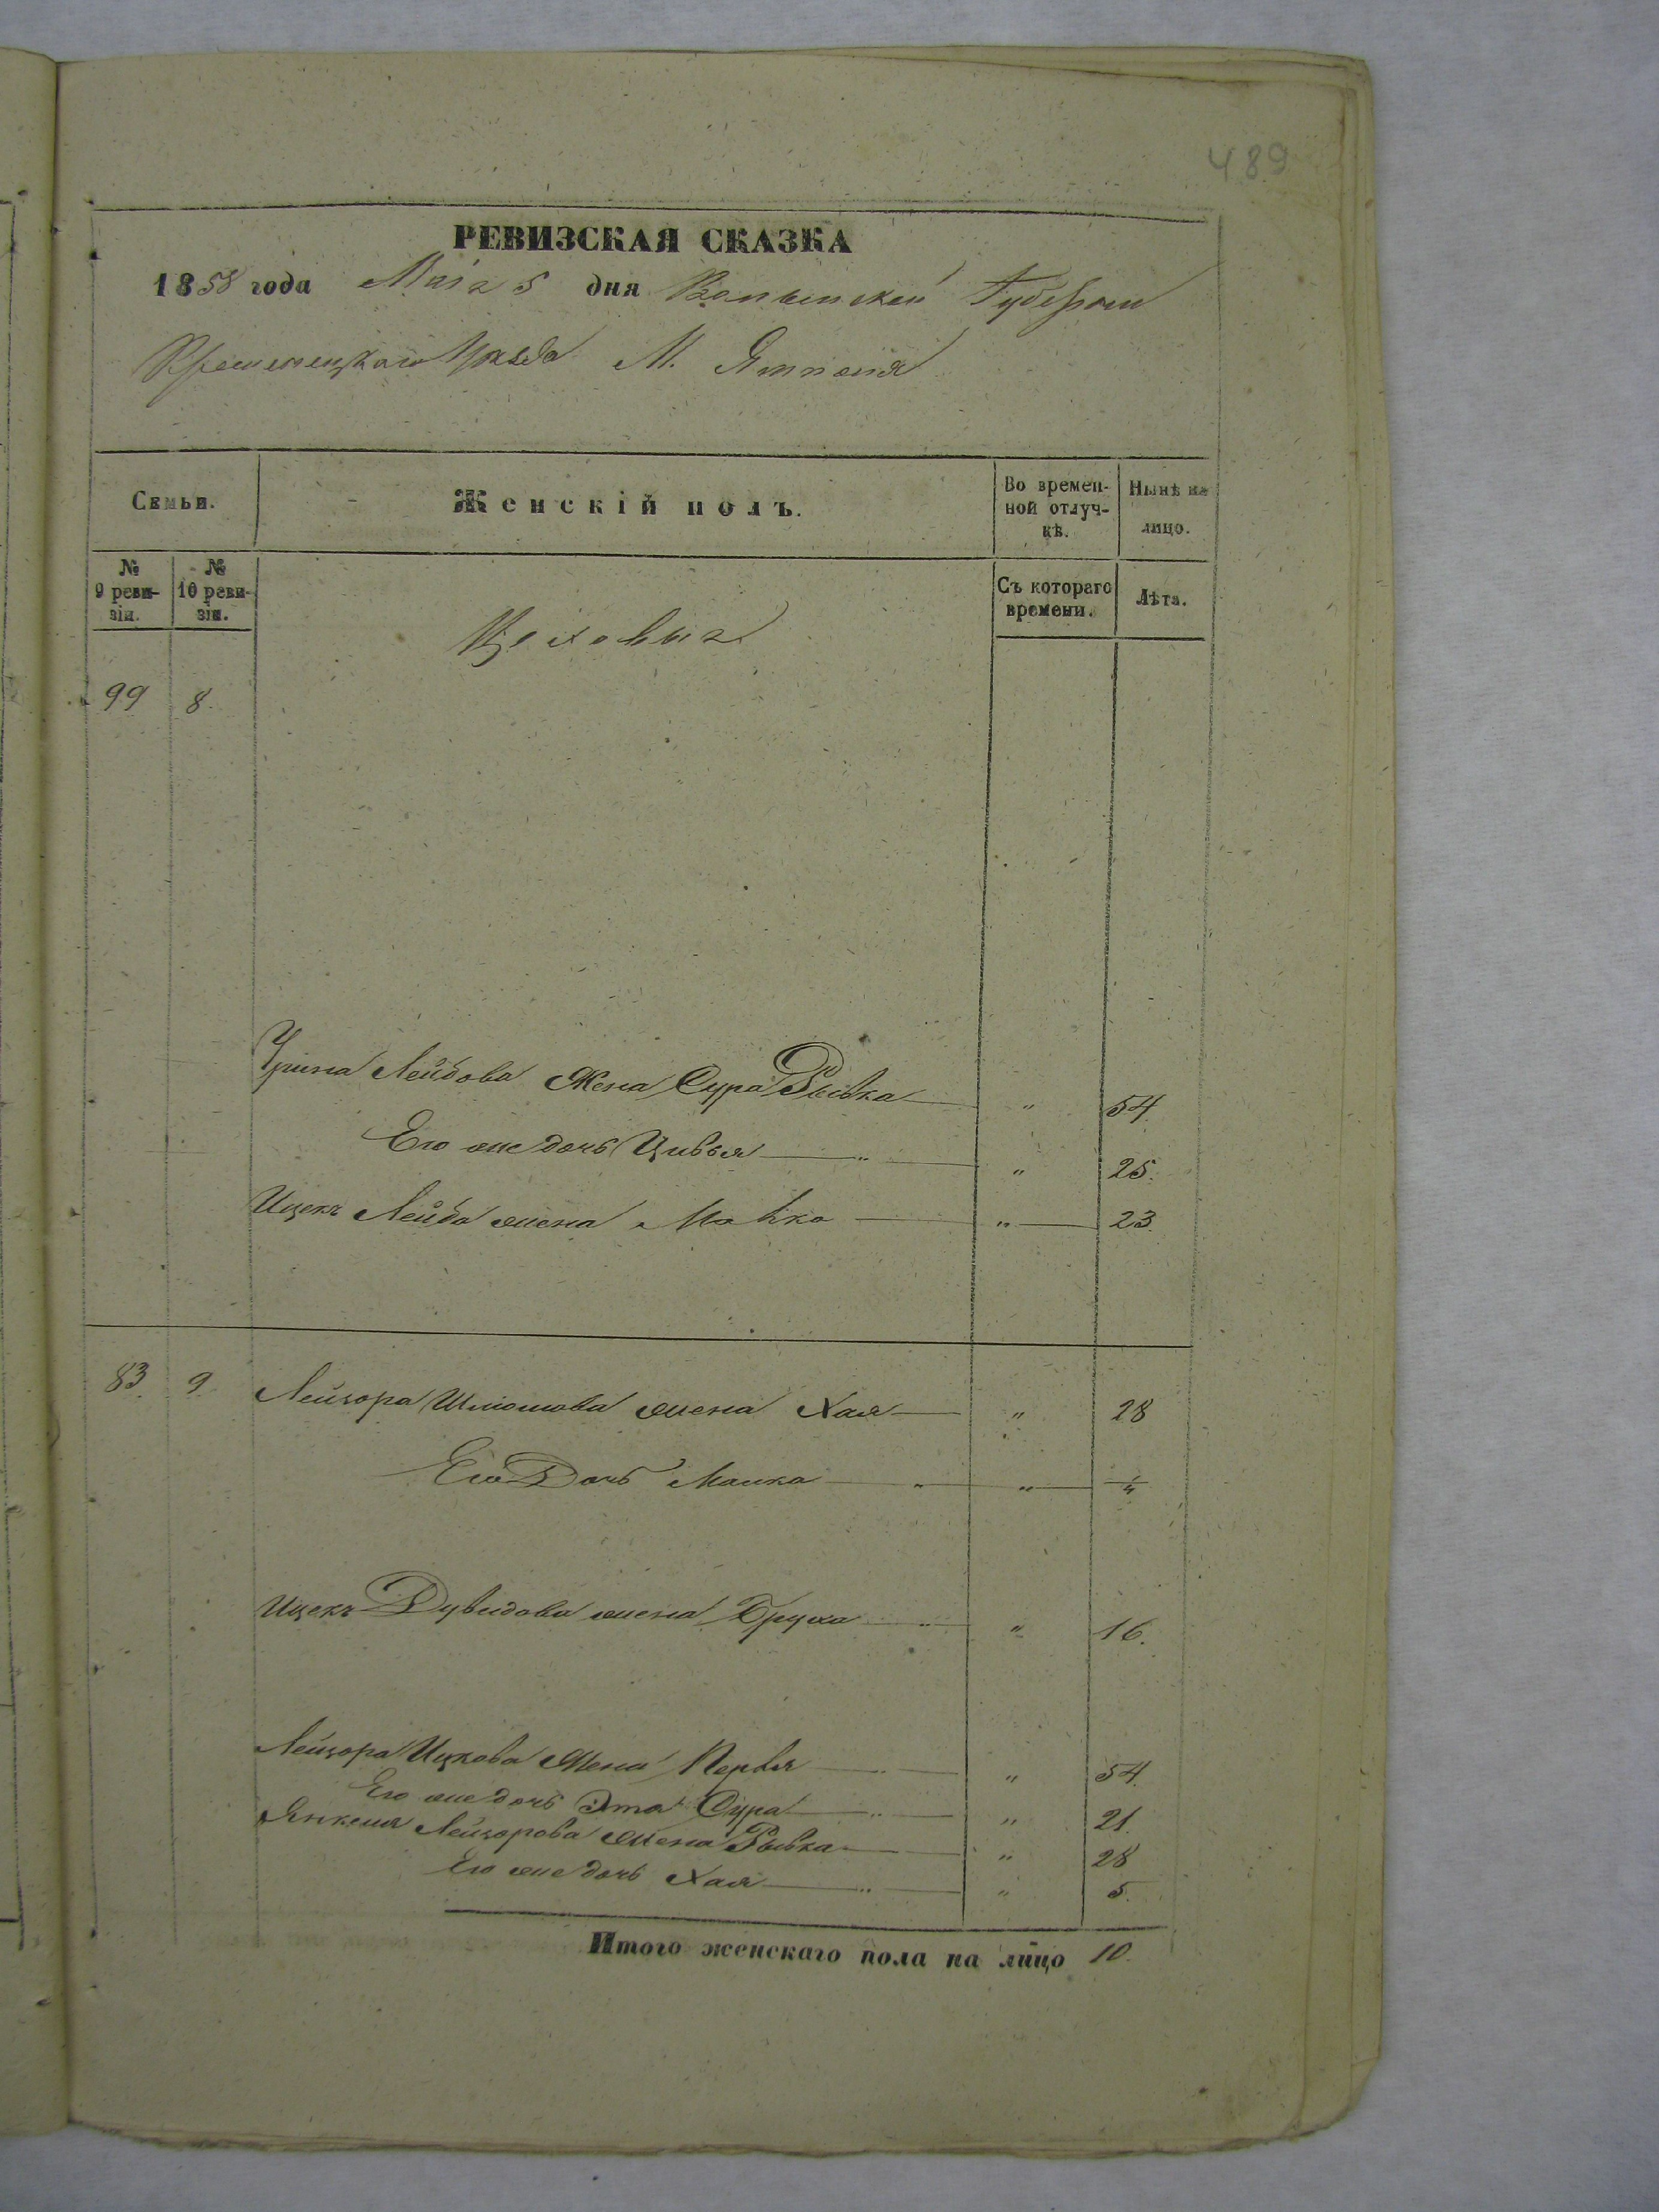 489
РЕВИЗСКАЯ СКАЗКА
1858 года Маiя 5 дня Волынской Губернiи
Кременецкаго Уѣзда М. Ямполя
Семьи.
Женскiй полъ.
Во времен-
ной отлуч-
кѣ.
Нынѣ на
лицо.
№
9 реви-
зiи.
№
10 реви-
зiи.
Съ котораго
времени.
Лѣта.
Цеховые
99 8.
Лейбова Жена Сура Рывка " 54
Его же дочь Цивья " 25.
Ицекъ Лейба жена " 23.
83. 9. Лейзора Шлiомова жена Хая " 28
Его Дочь Малка " 1/4
Ицекъ Дувидова жена Бруха " 16.
Лейзора Ицкова Жена Перля " 54.
Его же дочь Эта Сура " 21.
Янкеля Лейзорова Жена Рывка " 28
Его же дочь Хая " 5.
Итого женскаго пола на лицо 10.